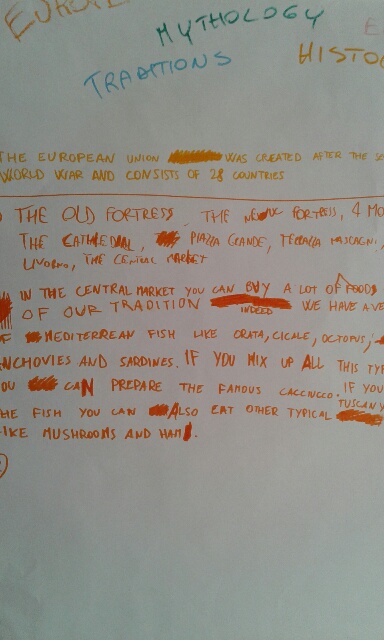 EUROPE
MYTHOLOGY
TRADITIONS
HISTO
THE EUROPEAN UNION WAS CREATED AFTER THE SE
WORLD WAR AND CONSISTS OF 28 COUNTRIES
THE OLD FORTRESS, THE NEW FORTRESS, 4 MO
THE CATHEDRAL, PIAZZA GRANDE, TERRAZZA MASCAGNI,
LIVORNO, THE CENTRAL MARKET
IN THE CENTRAL MARKET YOU CAN BUY A LOT OF FOODS
OF OUR TRADITION INDEED WE HAVE A VE
OF MEDITERREAN FISH LIKE ORATA, CICALE, OCTOPUS,
NCHOVIES AND SARDINES. IF YOU MIX UP ALL THIS TYP
OU CAN PREPARE THE FAMOUS CACCIUCCO. IF YOU
HE FISH YOU CAN ALSO EAT OTHER TYPICAL TUSCANY
LIKE MUSHROOMS AND HAM.